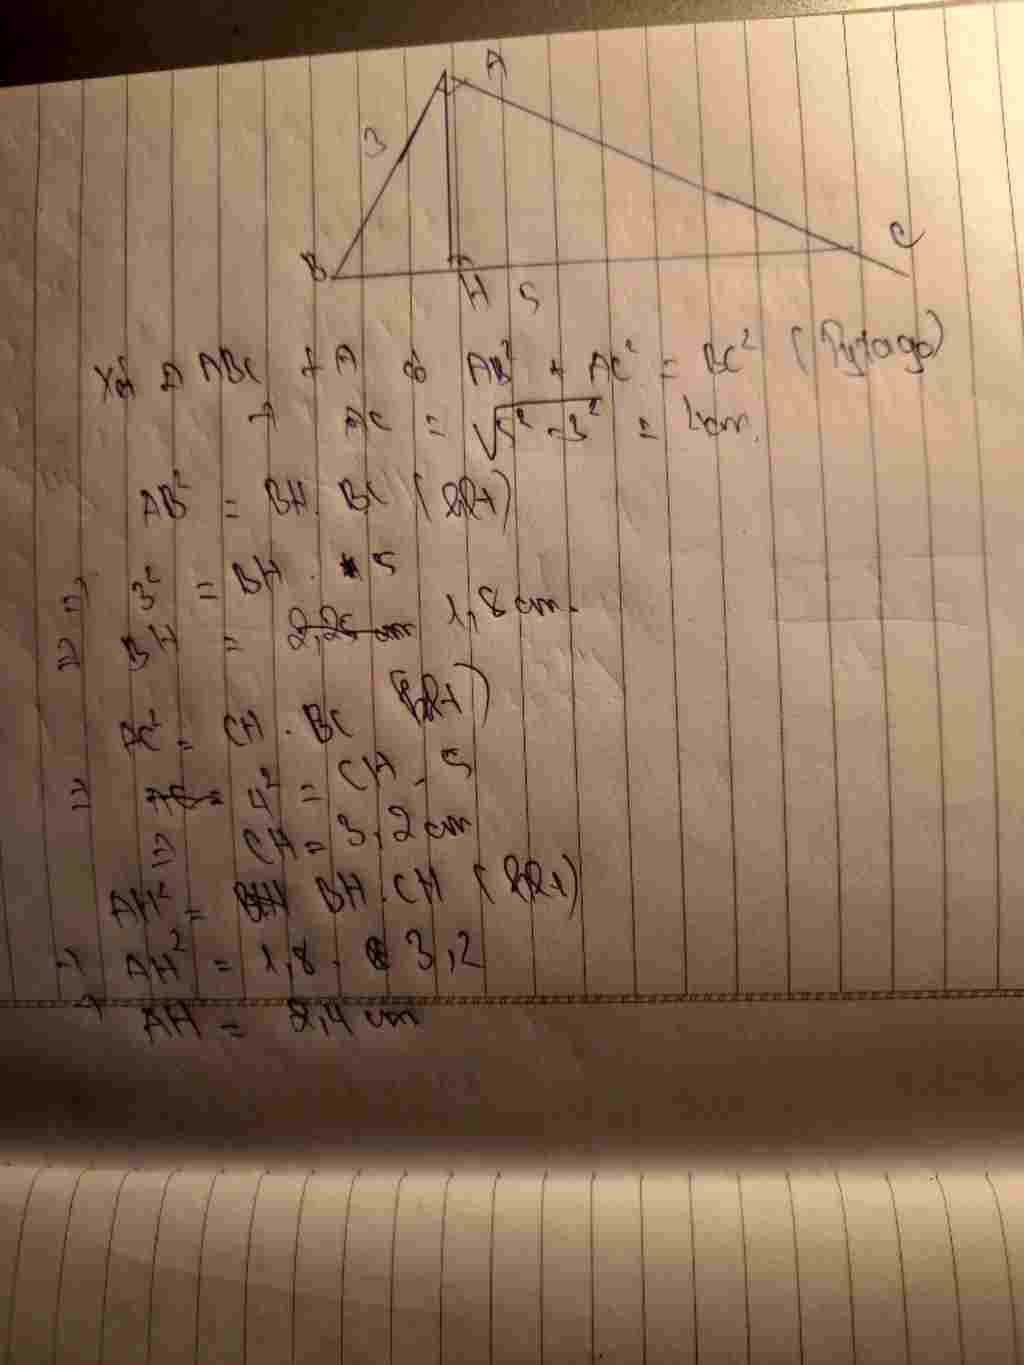 A
3
B
C
H 5
Xét Δ ABC ⊥ A có AB² + AC² = BC² (Pytago)
→ AC = √5² - 3² = 4cm.
AB² = BH. BC (HRt)
⇒ 3² = BH . 5
⇒ BH = 2,25 cm 1,8 cm.
AC² = CH . BC
⇒ AC = 4² = CH . 5
⇒ CH = 3,2 cm
AH² = BH BH . CH
→ AH² = 1,8 . 3,2
→ AH = 2,4 cm